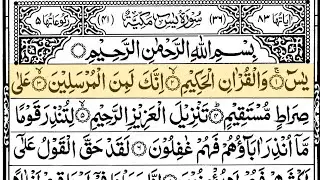 اٰیاتها ۸۳ (۳۶) سُوْرَةُ یٰسٓ مَكِّیَّةٌ (۴۱) ركوعاتها ۵
بِسْمِ اللّٰهِ الرَّحْمٰنِ الرَّحِیْمِ
یٰسٓ ۚ﴿۱﴾ وَ الْقُرْاٰنِ الْحَكِیْمِ ۙ﴿۲﴾ اِنَّكَ لَمِنَ الْمُرْسَلِیْنَ ۙ﴿۳﴾ عَلٰی
صِرَاطٍ مُّسْتَقِیْمٍ ؕ﴿۴﴾ تَنْزِیْلَ الْعَزِیْزِ الرَّحِیْمِ ۙ﴿۵﴾ لِتُنْذِرَ قَوْمًا
مَّاۤ اُنْذِرَ اٰبَآؤُهُمْ فَهُمْ غٰفِلُوْنَ ﴿۶﴾ لَقَدْ حَقَّ الْقَوْلُ عَلٰۤی